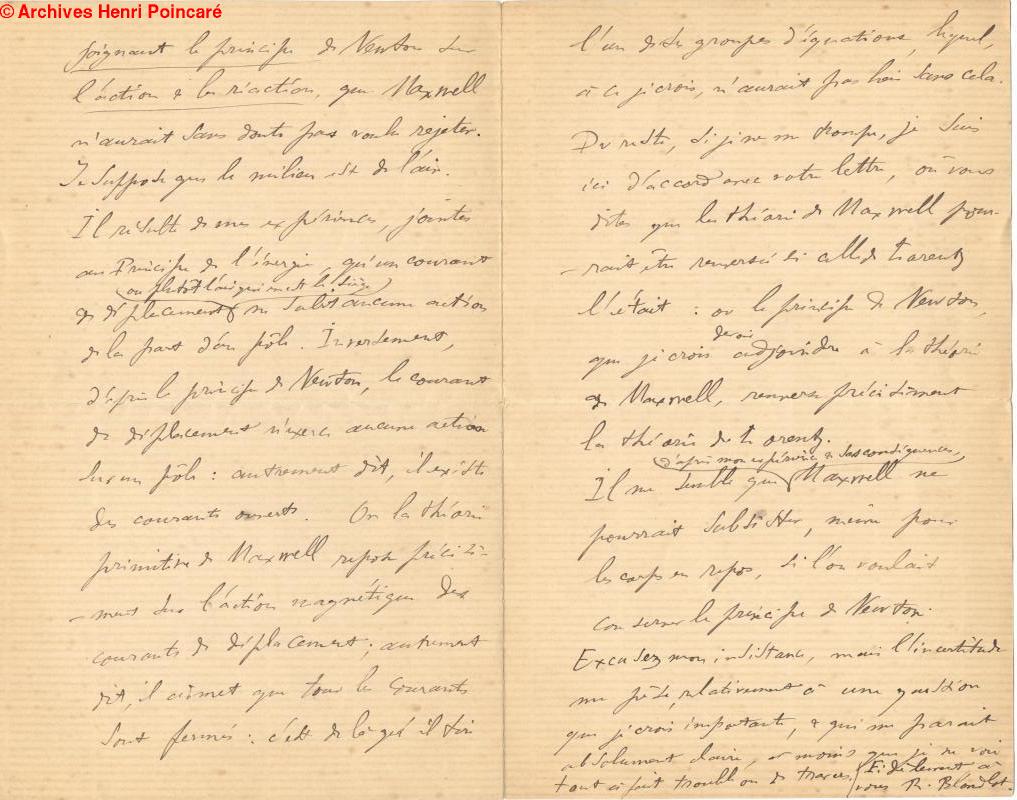 © Archives Henri Poincaré
joignant le principe de Newton sur
l'action & la réaction, que Maxwell
n'aurait sans doute pas voulu rejeter.
Je suppose que le milieu est de l'air.
Il résulte de mes expériences, jointes
au Principe de l'énergie, qu'un courant
(ou plutôt l'air qui en est le siège)
de déplacement ne subit aucune action
de la part d'un pôle. Inversement,
d'après le principe de Newton, le courant
de déplacement n'exerce aucune action
sur un pôle : autrement dit, il existe
des courants ouverts. Or la théorie
primitive de Maxwell repose précisé-
-ment sur l'action magnétique des
courants de déplacement ; autrement
dit, il admet que tous les courants
sont fermés : c'est de là qu'il tire
l'un de ses groupes d'équations, lequel,
à ce je crois, n'aurait pas lieu sans cela.
Du reste, si je ne me trompe, je suis
ici d'accord avec votre lettre, où vous
dites que la théorie de Maxwell pour-
-rait être renversée si celle de Lorentz
l'était : or le principe de Newton,
que je crois devoir adjoindre à la théorie
de Maxwell, renverse précisément
la théorie de Lorentz.
(d'après mon expérience & ses conséquences,)
Il me semble que Maxwell ne
pourrait subsister, même pour
les corps en repos, si l'on voulait
conserver le principe de Newton.
Excusez mon insistance, mais l'incertitude
me pèse, relativement à une question
que je crois importante, & qui me paraît
absolument claire, à moins que je ne sois
tout à fait troublé ou de travers. Fidèlement à
vous R. Blondlot.